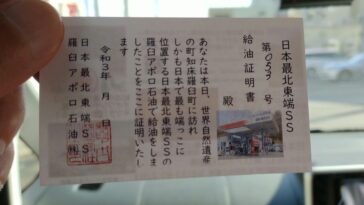 日本最北東端SS
給油証明書
第053号
殿
あなたは本日、世界自然遺産
の町知床羅臼町に訪れ
しかも日本で最も端っこに
位置する日本最北東端SSの
羅臼アポロ石油で給油をしま
したことをここに証明いたし
ます
令和3年 月 日
日本最北東端SS
羅臼アポロ石油㈱